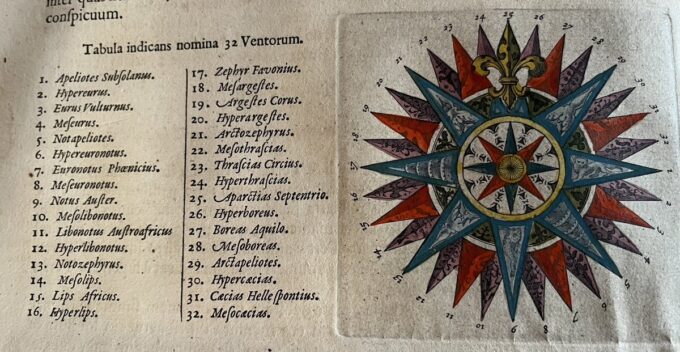 conſpicuum.
Tabula indicans nomina 32 Ventorum.
1. Apeliotes Subſolanus.
2. Hypereurus.
3. Eurus Vulturnus.
4. Meſeurus.
5. Notapeliotes.
6. Hypereuronotus.
7. Euronotus Phœnicius.
8. Meſeuronotus.
9. Notus Auſter.
10. Meſolibonotus.
11. Libonotus Auſtroafricus
12. Hyperlibonotus.
13. Notozephyrus.
14. Meſolips.
15. Lips Africus.
16. Hyperlips.
17. Zephyr Favonius.
18. Meſargeſtes.
19. Argeſtes Corus.
20. Hyperargeſtes.
21. Arctozephyrus.
22. Meſothraſcias.
23. Thraſcias Circius.
24. Hyperthraſcias.
25. Aparctias Septentrio.
26. Hyperboreus.
27. Boreas Aquilo.
28. Meſoboreas.
29. Arctapeliotes.
30. Hypercæcias.
31. Cæcias Helleſpontius.
32. Meſocæcias.